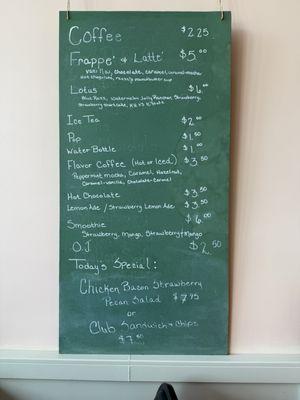 Coffee $2.25
Frappe' & Latte' $5.00
Vanilla, Chocolate, Caramel, caramel-mocha
Lotus $6.00
Blue Razz, Watermelon Jolly Rancher, Strawberry,
Strawberry shortcake,
Ice Tea $2.00
Pop $1.50
Water Bottle $1.00
Flavor Coffee (Hot or Iced) $3.50
Peppermint mocha, Caramel, Hazelnut,
Caramel-vanilla, Chocolate-Caramel
Hot Chocolate $3.50
Lemon Ade / Strawberry Lemon Ade $3.50
Smoothie $6.00
Strawberry, Mango, Strawberry/Mango
O.J $2.50
Today's Special:
Chicken Bacon Strawberry
Pecan Salad $7.95
or
Club Sandwich & Chips